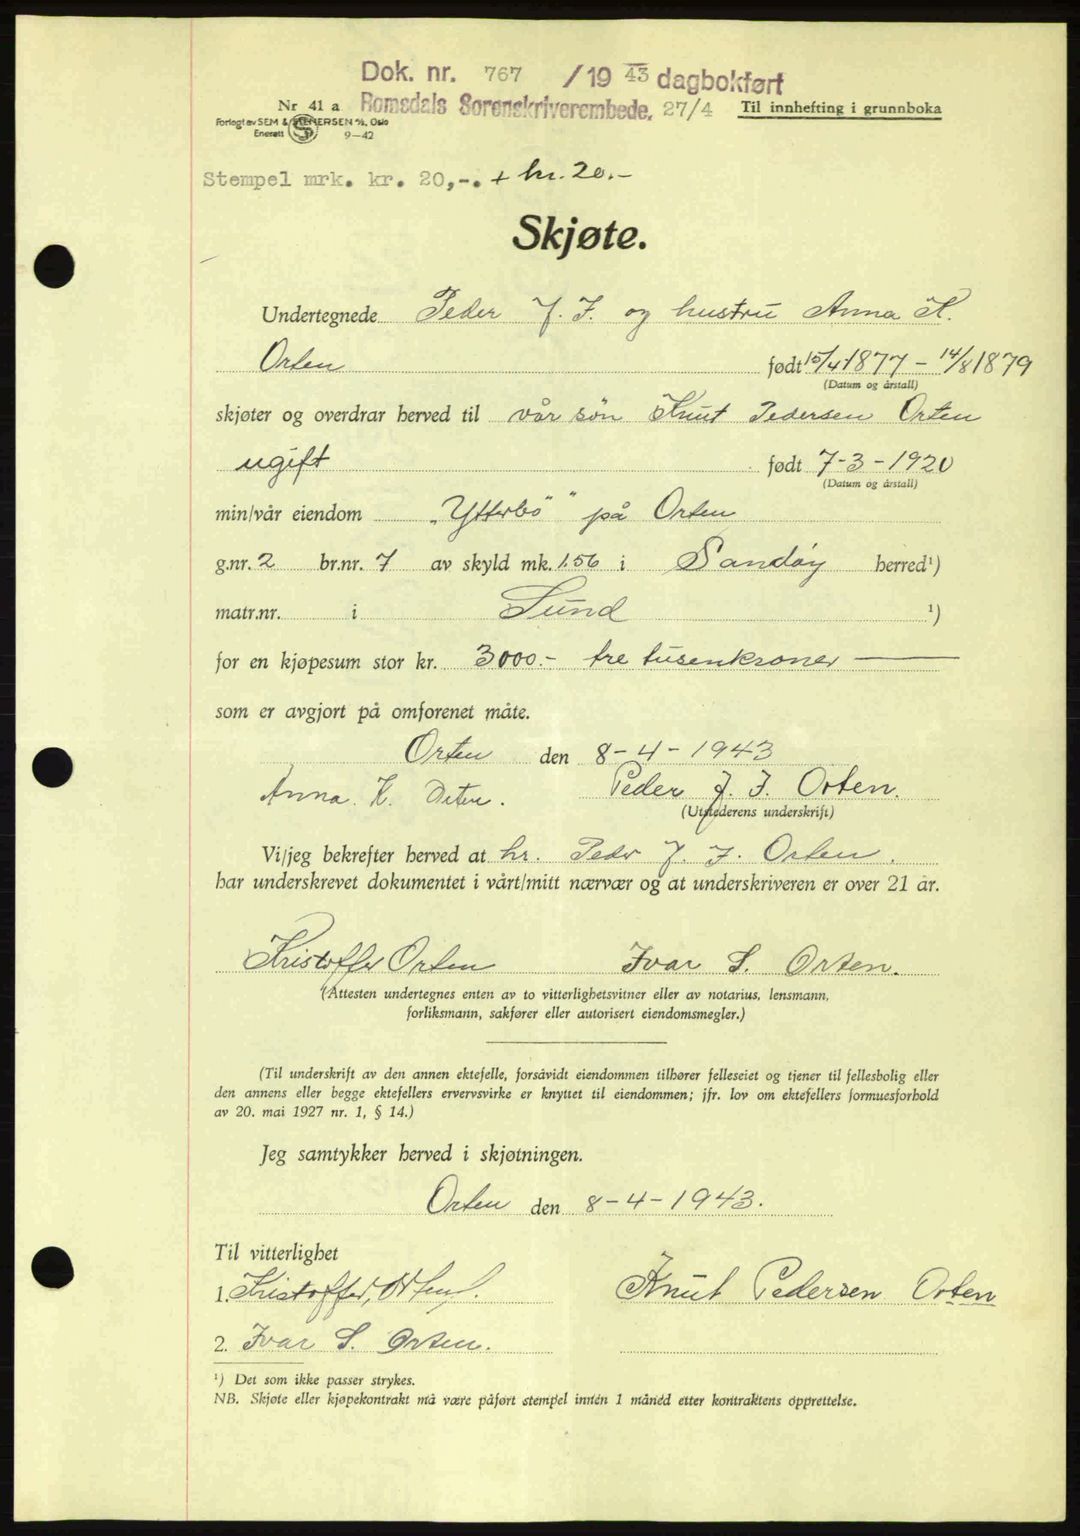 Dok. nr. 767 /19 43 dagbokført
Nr 41 a Romsdals Sorenskriverembede, 27/4 Til innhefting i grunnboka
Forlagt av SEM & STENERSEN A/S, Oslo
Enerett 9-42
Stempel mrk. kr. 20,-. + kr. 20.-
Skjøte.
Undertegnede Peder J. I. og hustru Anna K.
Orten født 15/4-1877 - 14/8 1879
(Datum og årstall)
skjøter og overdrar herved til vår søn Knut Pedersen Orten
ugift født 7-3-1920
(Datum og årstall)
min/vår eiendom "Ytterbö" på Orten
g.nr. 2 br.nr. 7 av skyld mk. 1.56 i Sandøy herred¹)
matr.nr. i Sund ¹)
for en kjøpesum stor kr. 3000.- tre tusenkroner
som er avgjort på omforenet måte.
Orten den 8-4-1943
Anna. K. Orten. Peder J. I. Orten.
(Utstederens underskrift)
Vi/jeg bekrefter herved at hr. Peder J. I. Orten.
har underskrevet dokumentet i vårt/mitt nærvær og at underskriveren er over 21 år.
Kristoffer Orten Ivar S. Orten.
(Attesten undertegnes enten av to vitterlighetsvitner eller av notarius, lensmann,
forliksmann, sakfører eller autorisert eiendomsmegler.)
(Til underskrift av den annen ektefelle, forsåvidt eiendommen tilhører felleseiet og tjener til fellesbolig eller
den annens eller begge ektefellers ervervsvirke er knyttet til eiendommen; jfr. lov om ektefellers formuesforhold
av 20. mai 1927 nr. 1, § 14.)
Jeg samtykker herved i skjøtningen.
Orten den 8-4-1943.
Til vitterlighet
1. Kristoffer Orten. Knut Pedersen Orten
2. Ivar S. Orten.
¹) Det som ikke passer strykes.
NB. Skjøte eller kjøpekontrakt må være påført stempel innen 1 måned etter kontraktens opprettelse.